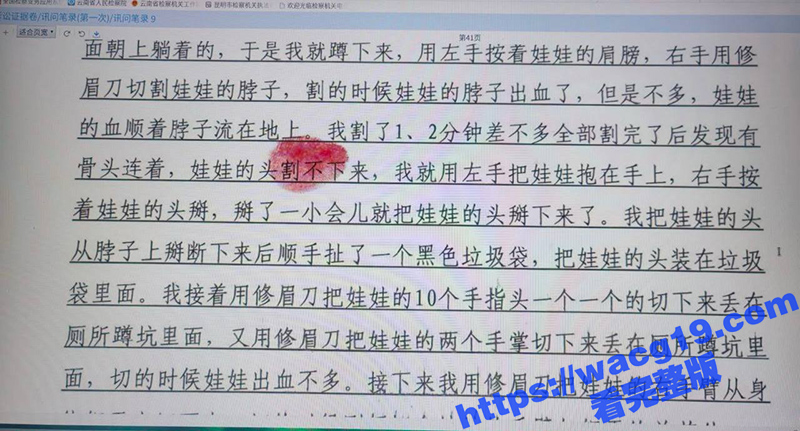 讼证据卷/讯问笔录(第一次)/讯问笔录 9
适合页宽
第41页
面朝上躺着的，于是我就蹲下来，用左手按着娃娃的肩膀，右手用修
眉刀切割娃娃的脖子，割的时候娃娃的脖子出血了，但是不多，娃娃
的血顺着脖子流在地上。我割了1、2分钟差不多全部割完了后发现有
骨头连着，娃娃的头割不下来，我就用左手把娃娃抱在手上，右手按
着娃娃的头掰，掰了一小会儿就把娃娃的头掰下来了。我把娃娃的头
从脖子上掰断下来后顺手扯了一个黑色垃圾袋，把娃娃的头装在垃圾
袋里面。我接着用修眉刀把娃娃的10个手指头一个一个的切下来丢在
厕所蹲坑里面，又用修眉刀把娃娃的两个手掌切下来丢在厕所蹲坑里
面，切的时候娃娃出血不多。接下来我用修眉刀把娃娃的右手臂从身
https://wacg19.com
看完整版